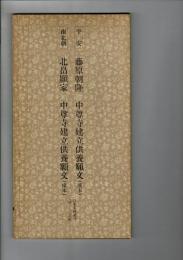 平安 藤原朝隆 中尊寺建立供養願文（模本）
南北朝 北畠顕家 中尊寺建立供養願文（模本）